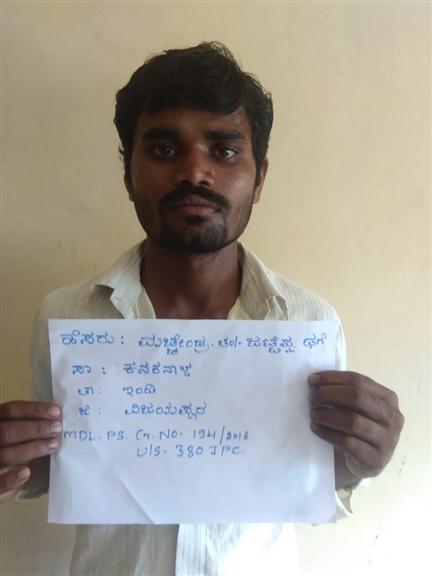 ಹೆಸರು : ಮಚ್ಚೇಂದ್ರ. ತಂ/- ಜಟ್ಟೆಪ್ಪ ಢಗೆ
ಸಾ : ಕನಕನಾಳ
ತಾ : ಇಂಡಿ
ಜಿ : ವಿಜಯಪುರ
MDL. PS. Cr. NO- 194/2018
U/S- 380 IPC.